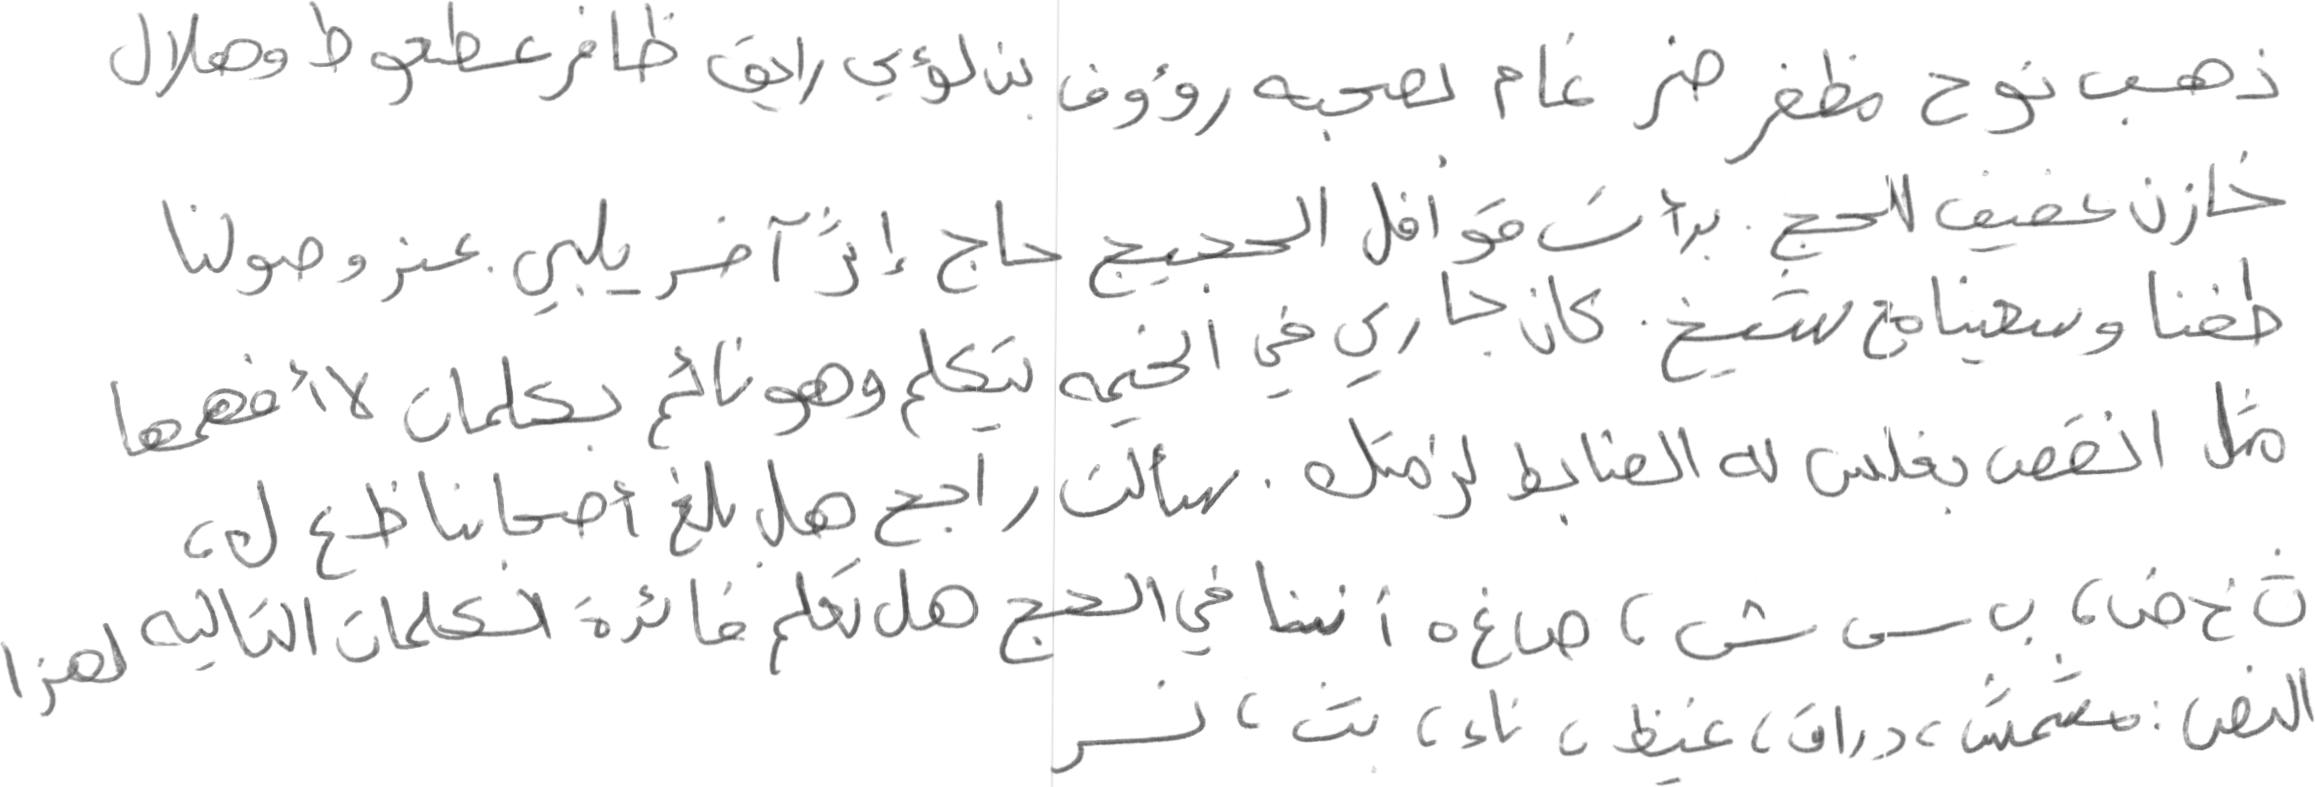 ذهب نوح مظفر ضرغام لصحبه رؤوف بن لؤي رايق ظافر عطعوط وهلال
خازن عفيف للحج. بدأت قوافل الحجيج حاج إثر آخر يلبي. عند وصولنا
طفنا وسعينا مع شيخ. كان جاري في الخيمه يتكلم وهو نائم بكلمات لا أفهمها
مثل انقض بغلس له الضابط لزمتك. سألت راجح هل بلغ أصحابنا ظ ع ل،
ث خ ض، ب س ش، صاغ ه أننا في الحج هل تعلم فائدة الكلمات التاليه لهذا
النص: مشمش، دراق، غيظ، ناء، بث، نسر